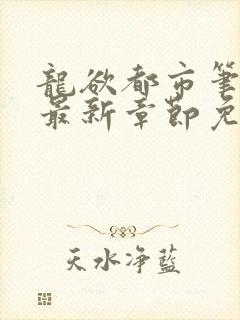 龍欲都市筆
最新章節免
天水净藍